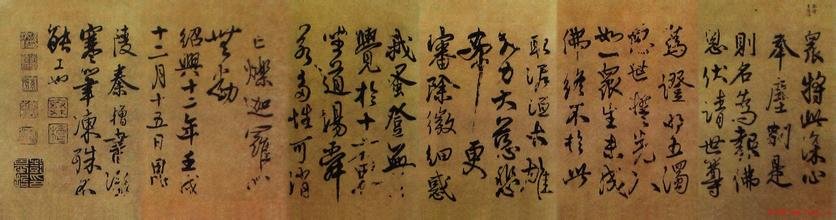 眾將此深心
奉塵剎是
則名為報佛
恩伏請世尊
為證明五濁
惡世誓先入
如一眾生未成
佛終不於此
取泥洹大雄
大力大慈悲
希更
審除微細惑
我蚤登無
覺於十
坐道場舜
若多性可消
亡爍迦羅心
無動
紹興十二年壬戌
十二月十五日
陵秦檜書
寒筆凍殊不
能工也